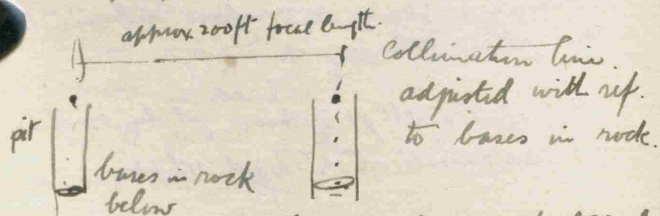 approx 200ft focal length.
Collimation line.
adjusted with ref.
to bases in rock.
pit
bases in rock
below